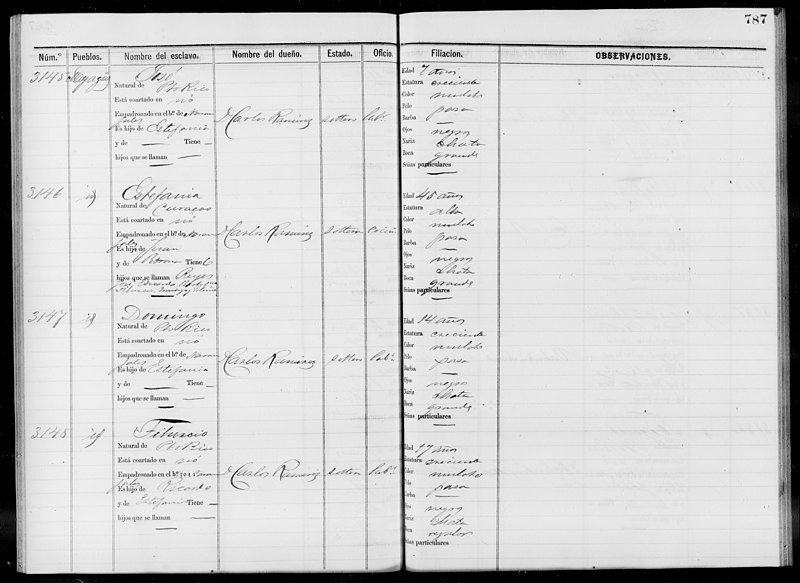 787
Núm.º Pueblos. Nombre del esclavo. Nombre del dueño. Estado. Oficio. Filiacion. OBSERVACIONES.
3145 Mayagüez José
Natural de Pto Rico
Está coartado en nó
Empadronado en el b.º de Naran
jales
Es hijo de Estefania
y de — Tiene —
hijos que se llaman —
D Carlos Ramirez soltero Lab.r
Edad 7 años
Estatura creciente
Color mulato
Pelo pasa
Barba —
Ojos negros
Nariz chata
Boca grande
Señas particulares
3146 id Estefania
Natural de Curacao
Está coartado en nó
Empadronado en el b.º de Naran
jales
Es hijo de Juan
y de Tiene 6
hijos que se llaman Reyes
D Carlos Ramirez soltera
Edad 45 años
Estatura alta
Color mulato
Pelo pasa
Barba —
Ojos negros
Nariz chata
Boca grande
Señas particulares
3147 id Domingo
Natural de Pto Rico
Está coartado en no
Empadronado en el b.º de Naran
jales
Es hijo de Estefania
y de — Tiene —
hijos que se llaman —
D Carlos Ramirez soltero Lab.r
Edad 14 años
Estatura creciente
Color mulato
Pelo pasa
Barba —
Ojos negros
Nariz chata
Boca grande
Señas particulares
3148 id
Natural de Pto Rico
Está coartado en nó
Empadronado en el b.º de Naran
jales
Es hijo de Ricardo
y de Estefania Tiene —
hijos que se llaman —
D Carlos Ramirez soltero Lab.r
Edad 17 años
Estatura creciente
Color mulato
Pelo pasa
Barba —
Ojos negros
Nariz chata
Boca regular
Señas particulares